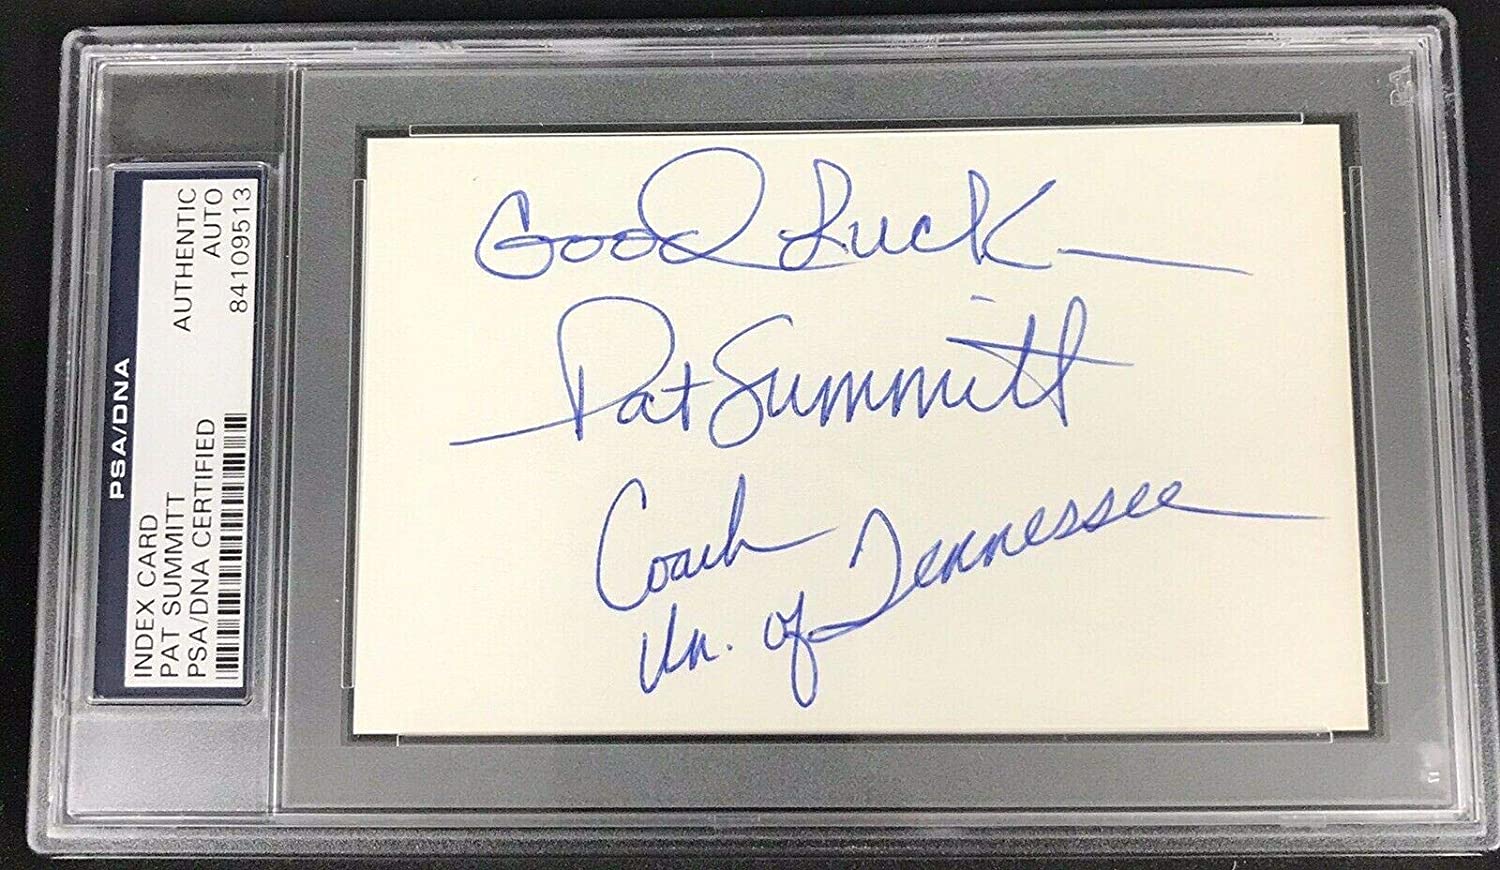 PSA/DNA
INDEX CARD
PAT SUMMITT
PSA/DNA CERTIFIED
AUTHENTIC
AUTO
84109513
Good Luck
Pat Summitt
Coach
Un. of Tennessee